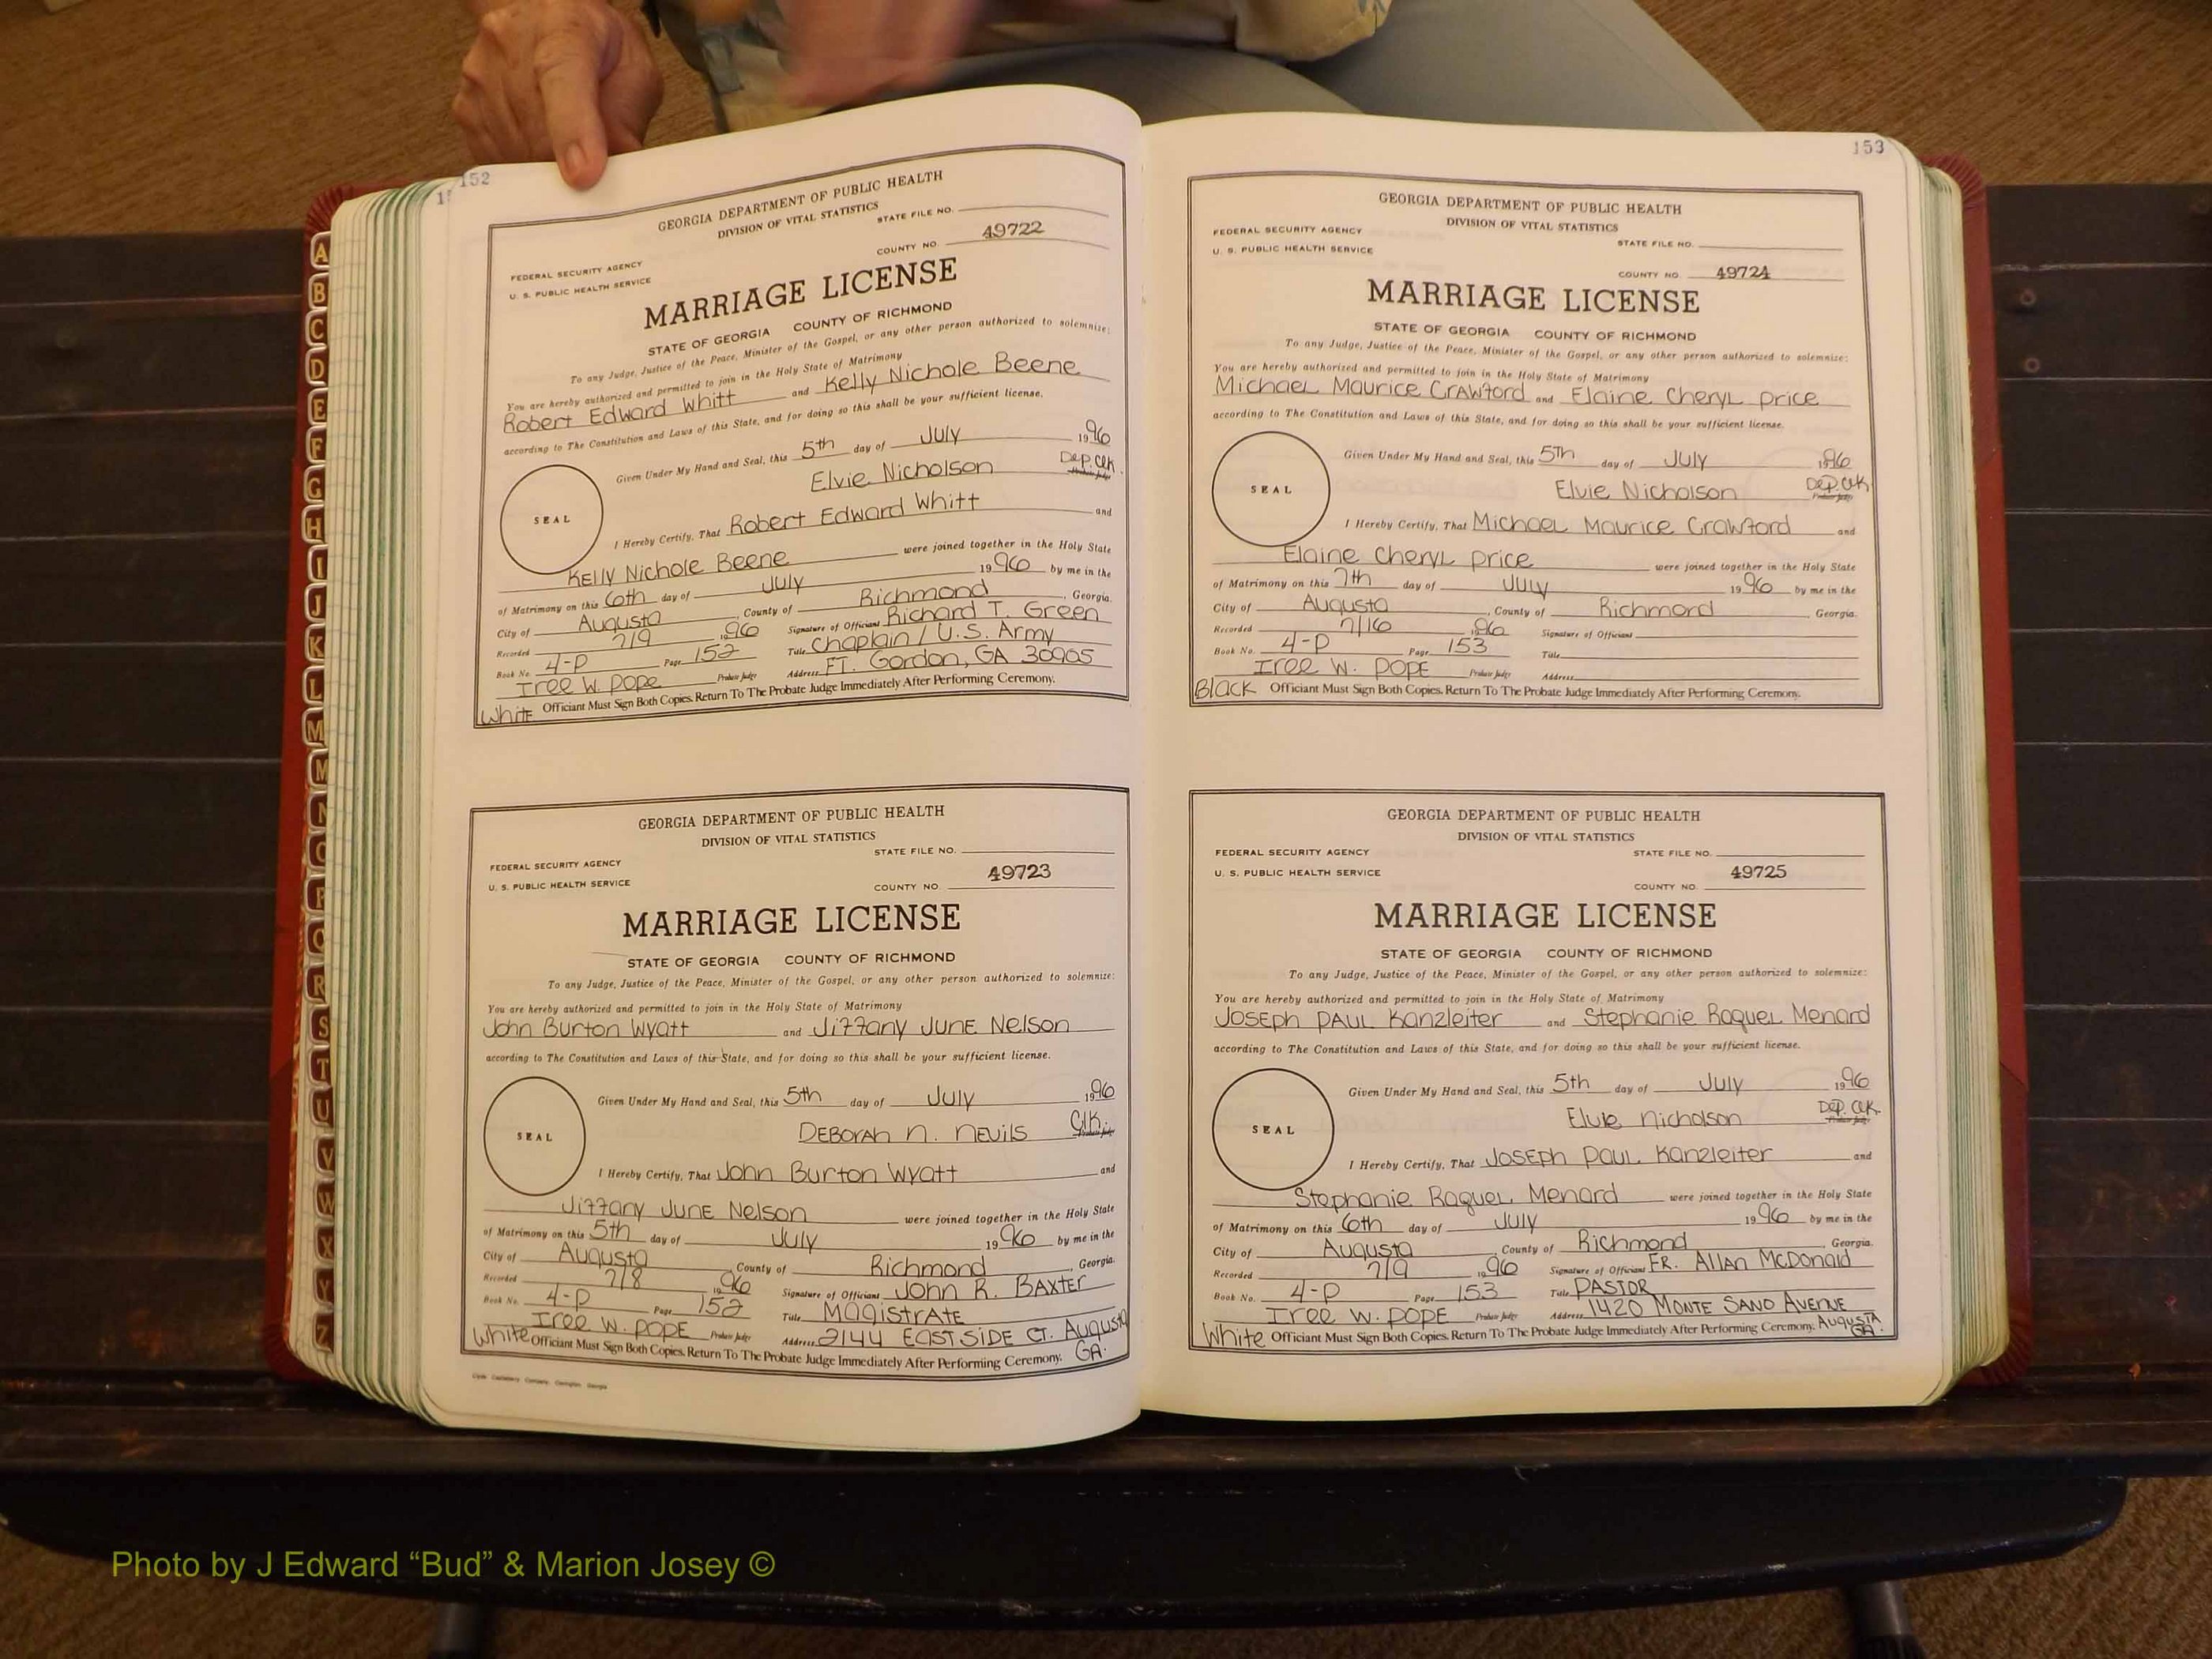 152
GEORGIA DEPARTMENT OF PUBLIC HEALTH
DIVISION OF VITAL STATISTICS
STATE FILE NO.
COUNTY NO. 49722
FEDERAL SECURITY AGENCY
U. S. PUBLIC HEALTH SERVICE
MARRIAGE LICENSE
STATE OF GEORGIA COUNTY OF RICHMOND
To any Judge, Justice of the Peace, Minister of the Gospel, or any other person authorized to solemnize:
You are hereby authorized and permitted to join in the Holy State of Matrimony
Robert Edward Whitt and Kelly Nichole Beene
according to The Constitution and Laws of this State, and for doing so this shall be your sufficient license.
Given Under My Hand and Seal, this 5th day of July 1996
Elvie Nicholson Dep. Clk. Probate Judge
SEAL
I Hereby Certify, That Robert Edward Whitt and
Kelly Nichole Beene were joined together in the Holy State
of Matrimony on this 6th day of July 1996 by me in the
City of Augusta, County of Richmond, Georgia.
Recorded 7/9 1996 Signature of Official Richard T. Green
Book No. 4-P Page 152 Title Chaplain / U.S. Army
Iree W. Pope Probate Judge Address FT. Gordon, GA 30905
White Officiant Must Sign Both Copies. Return To The Probate Judge Immediately After Performing Ceremony.
GEORGIA DEPARTMENT OF PUBLIC HEALTH
DIVISION OF VITAL STATISTICS
STATE FILE NO.
FEDERAL SECURITY AGENCY
U. S. PUBLIC HEALTH SERVICE
COUNTY NO. 49723
MARRIAGE LICENSE
STATE OF GEORGIA COUNTY OF RICHMOND
To any Judge, Justice of the Peace, Minister of the Gospel, or any other person authorized to solemnize:
You are hereby authorized and permitted to join in the Holy State of Matrimony
John Burton Wyatt and Jiffany June Nelson
according to The Constitution and Laws of this State, and for doing so this shall be your sufficient license.
Given Under My Hand and Seal, this 5th day of July 1996
Deborah N. Nevils Clk. Probate Judge
SEAL
I Hereby Certify, That John Burton Wyatt and
Jiffany June Nelson were joined together in the Holy State
of Matrimony on this 5th day of July 1996 by me in the
City of Augusta, County of Richmond, Georgia.
Recorded 7/8 1996 Signature of Official John R. Baxter
Book No. 4-P Page 152 Title Magistrate
Iree W. Pope Probate Judge Address 2144 East Side Ct. Augusta
White Officiant Must Sign Both Copies. Return To The Probate Judge Immediately After Performing Ceremony. GA.
153
GEORGIA DEPARTMENT OF PUBLIC HEALTH
DIVISION OF VITAL STATISTICS
FEDERAL SECURITY AGENCY
STATE FILE NO.
U. S. PUBLIC HEALTH SERVICE
COUNTY NO. 49724
MARRIAGE LICENSE
STATE OF GEORGIA COUNTY OF RICHMOND
To any Judge, Justice of the Peace, Minister of the Gospel, or any other person authorized to solemnize:
You are hereby authorized and permitted to join in the Holy State of Matrimony
Michael Maurice Crawford and Elaine Cheryl Price
according to The Constitution and Laws of this State, and for doing so this shall be your sufficient license.
Given Under My Hand and Seal, this 5th day of July 1996
Elvie Nicholson Dep. Clk Probate Judge
SEAL
I Hereby Certify, That Michael Maurice Crawford and
Elaine Cheryl Price were joined together in the Holy State
of Matrimony on this 7th day of July 1996 by me in the
City of Augusta, County of Richmond, Georgia.
Recorded 7/16 1996 Signature of Official
Book No. 4-P Page 153 Title
Iree W. Pope Probate Judge Address
Black Officiant Must Sign Both Copies. Return To The Probate Judge Immediately After Performing Ceremony.
GEORGIA DEPARTMENT OF PUBLIC HEALTH
DIVISION OF VITAL STATISTICS
FEDERAL SECURITY AGENCY
STATE FILE NO.
U. S. PUBLIC HEALTH SERVICE
COUNTY NO. 49725
MARRIAGE LICENSE
STATE OF GEORGIA COUNTY OF RICHMOND
To any Judge, Justice of the Peace, Minister of the Gospel, or any other person authorized to solemnize:
You are hereby authorized and permitted to join in the Holy State of Matrimony
Joseph Paul Kanzleiter and Stephanie Raquel Menard
according to The Constitution and Laws of this State, and for doing so this shall be your sufficient license.
Given Under My Hand and Seal, this 5th day of July 1996
Elvie Nicholson Dep. Clk. Probate Judge
SEAL
I Hereby Certify, That Joseph Paul Kanzleiter and
Stephanie Raquel Menard were joined together in the Holy State
of Matrimony on this 6th day of July 1996 by me in the
City of Augusta, County of Richmond, Georgia.
Recorded 7/9 1996 Signature of Official Fr. Allan McDonald
Book No. 4-P Page 153 Title Pastor
Iree W. Pope Probate Judge Address 1420 Monte Sano Avenue
White Officiant Must Sign Both Copies. Return To The Probate Judge Immediately After Performing Ceremony. Augusta GA.
A
B
C
D
E
F
G
H
I
J
K
L
M
M
N
O
P
Q
R
S
T
U
V
W
X
Y
Z
Photo by J Edward “Bud” & Marion Josey ©